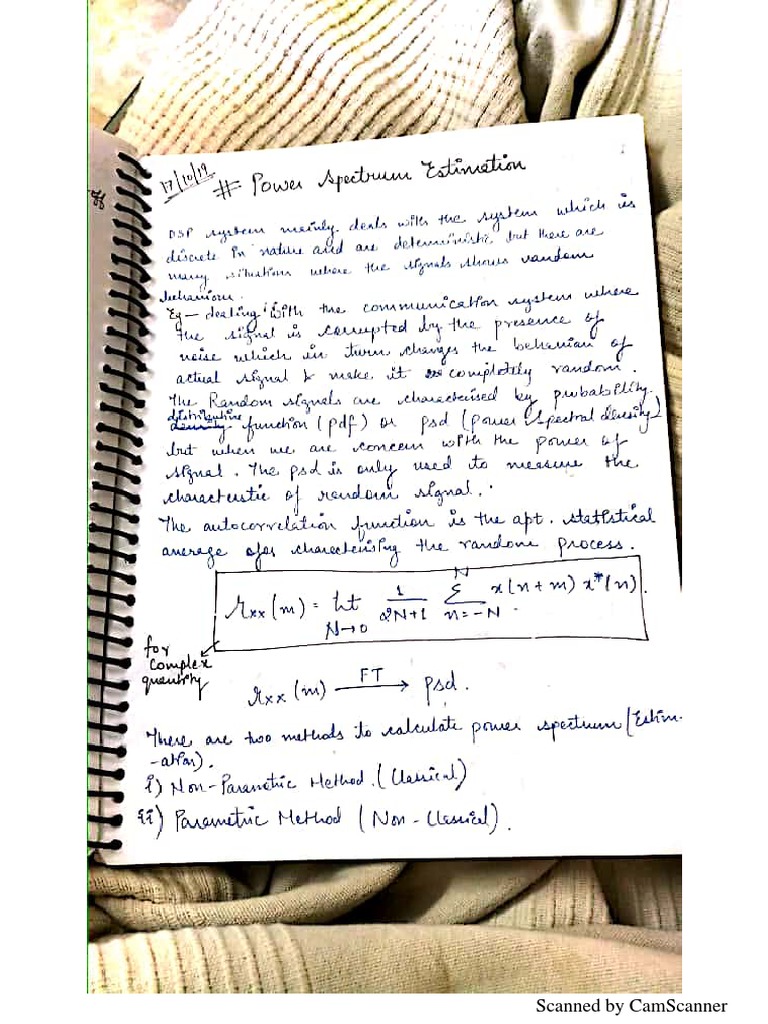 17/10/19
# Power Spectrum Estimation
DSP system mainly deals with the system which is
discrete in nature and are deterministic but there are
many situations where the signals shows random
behaviour.
Eg - dealing with the communication system where
the signal is corrupted by the presence of
noise which in turn changes the behaviour of
actual signal & make it completely random.
The Random signals are characterised by probability
distributive
density function (pdf) or psd (power spectral density)
but when we are concern with the power of
signal. The psd is only used to measure the
characteristic of random signal.
The autocorrelation function is the apt. statistical
average for characterising the random process.
rxx(m) = lt N→0 1/2N+1 Σ N n=-N x(n+m) x*(n).
for
complex
quantity
rxx(m) FT → psd.
There are two methods to calculate power spectrum (Estim-
-ation).
i) Non-Parametric Method. (Classical)
ii) Parametric Method (Non-Classical).
Scanned by CamScanner